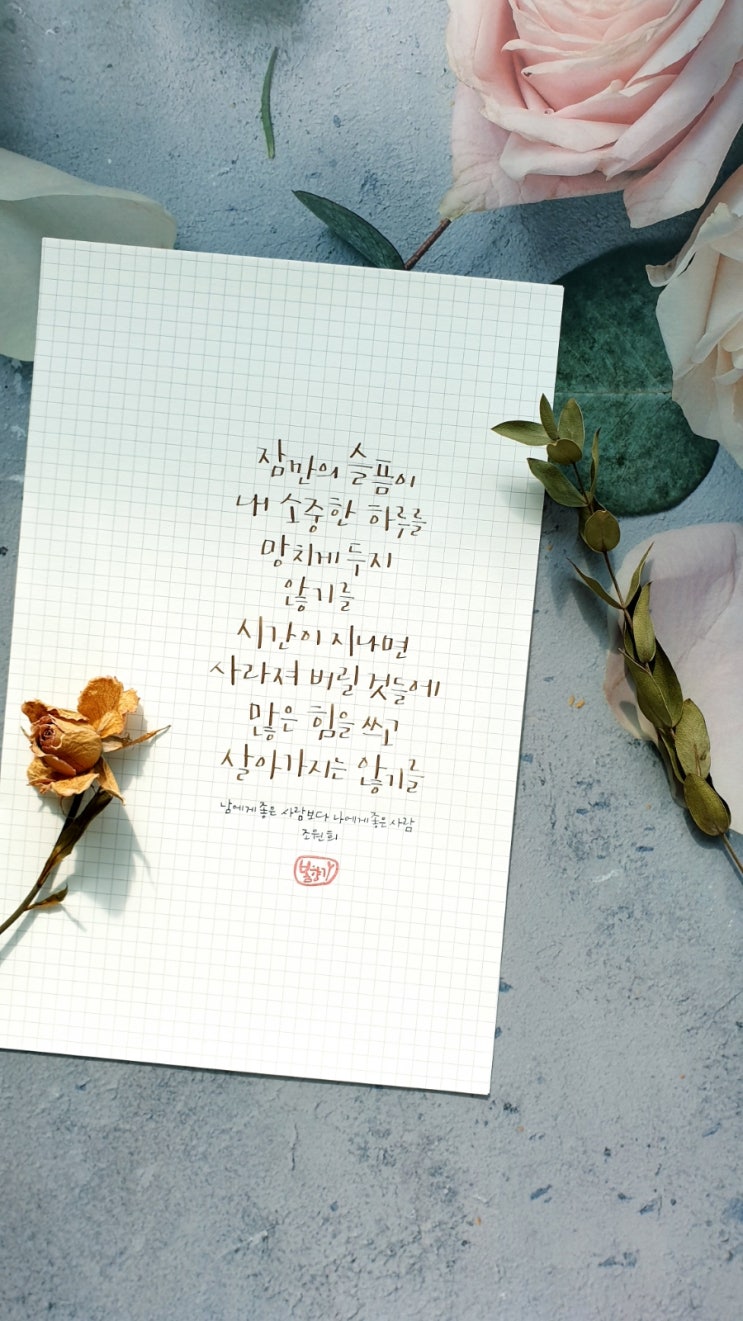 잠깐의 슬픔이
내 소중한 하루를
망치게 두지
않기를
시간이 지나면
사라져 버릴 것들에
많은 힘을 쓰고
살아가지는 않기를
남에게 좋은 사람보다 나에게 좋은 사람
조원희
봄향기